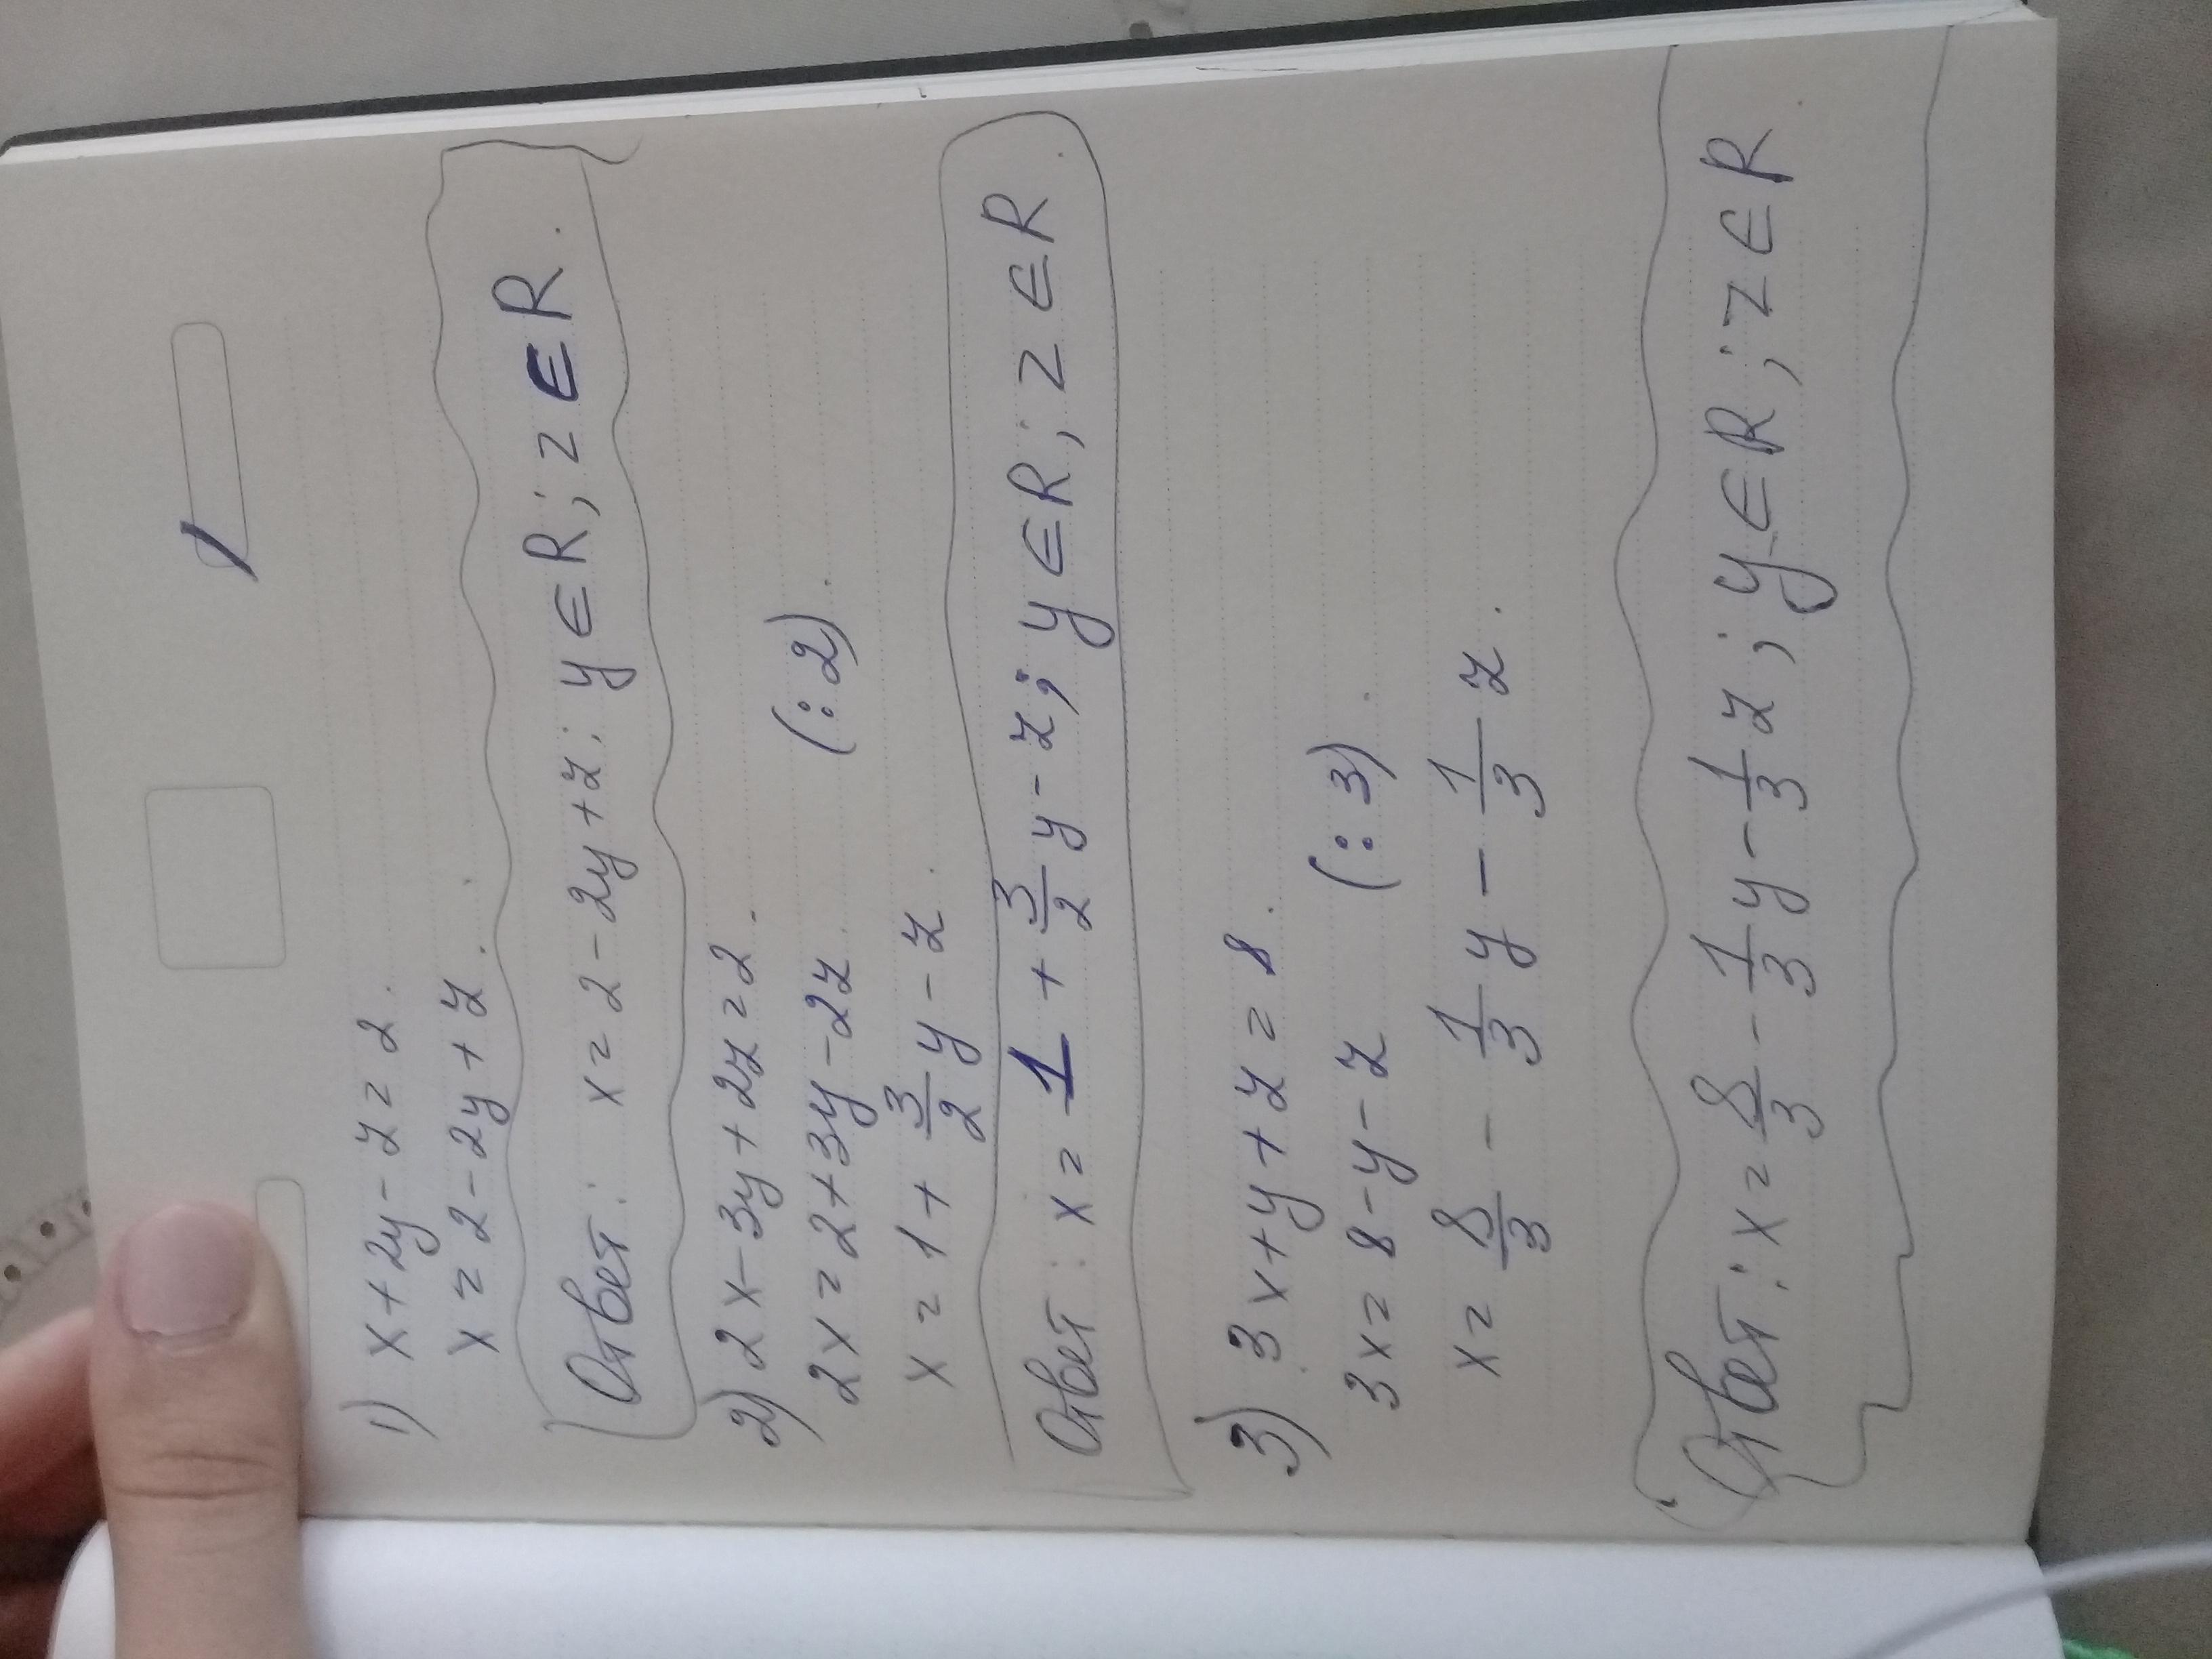 1) x+2y-z=2.
x=2-2y+z.
Ответ: x=2-2y+z; y∈R; z∈R.
2) 2x-3y+2z=2.
2x=2+3y-2z. (:2).
x=1+3/2y-z.
Ответ: x=1+3/2y-z; y∈R; z∈R.
3) 3x+y+z=8.
3x=8-y-z (:3).
x=8/3-1/3y-1/3z.
Ответ: x=8/3-1/3y-1/3z; y∈R; z∈R.